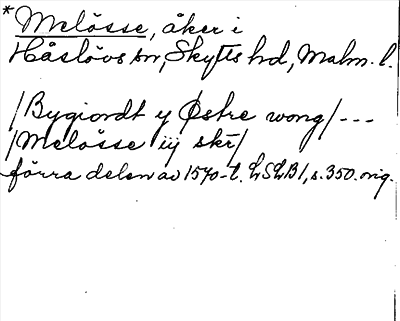 * Melösse, åker i
Håslövs sn, Skytts hd, Malm. l.
/Bygiordt y Østre wong/ ---
/Melösse iij skr/
förra delen av 1570-t. LSLB 1, s. 350. orig.